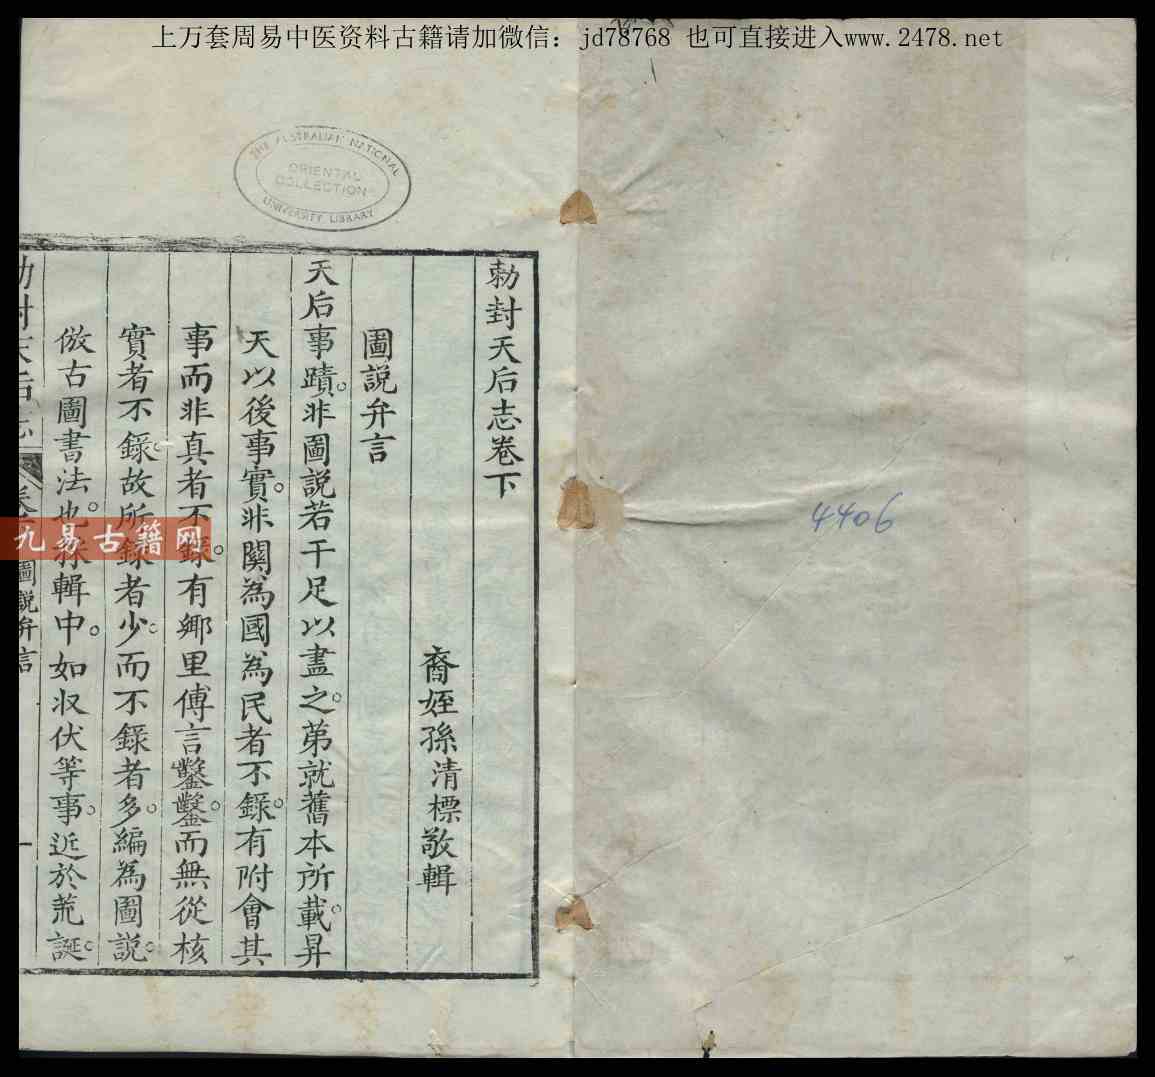 上万套周易中医资料古籍请加微信：jd78768 也可直接进入www.2478.net
THE AUSTRALIAN NATIONAL
ORIENTAL
COLLECTION
UNIVERSITY LIBRARY
4406
勅封天后志卷下
裔姪孫清標敬輯
圖說弁言
天后事蹟。非圖說若干足以盡之。苐就舊本所載。昇
天以後事實。非關為國為民者不錄。有附會其
事而非真者不錄。有鄉里傅言鑿鑿。而無從核
實者不錄。故所錄者少。而不錄者多。編為圖說。
倣古圖書法也。採輯中。如収伏等事。近於荒誕。
勅封天后志
圖說弁言
一
九易古籍网